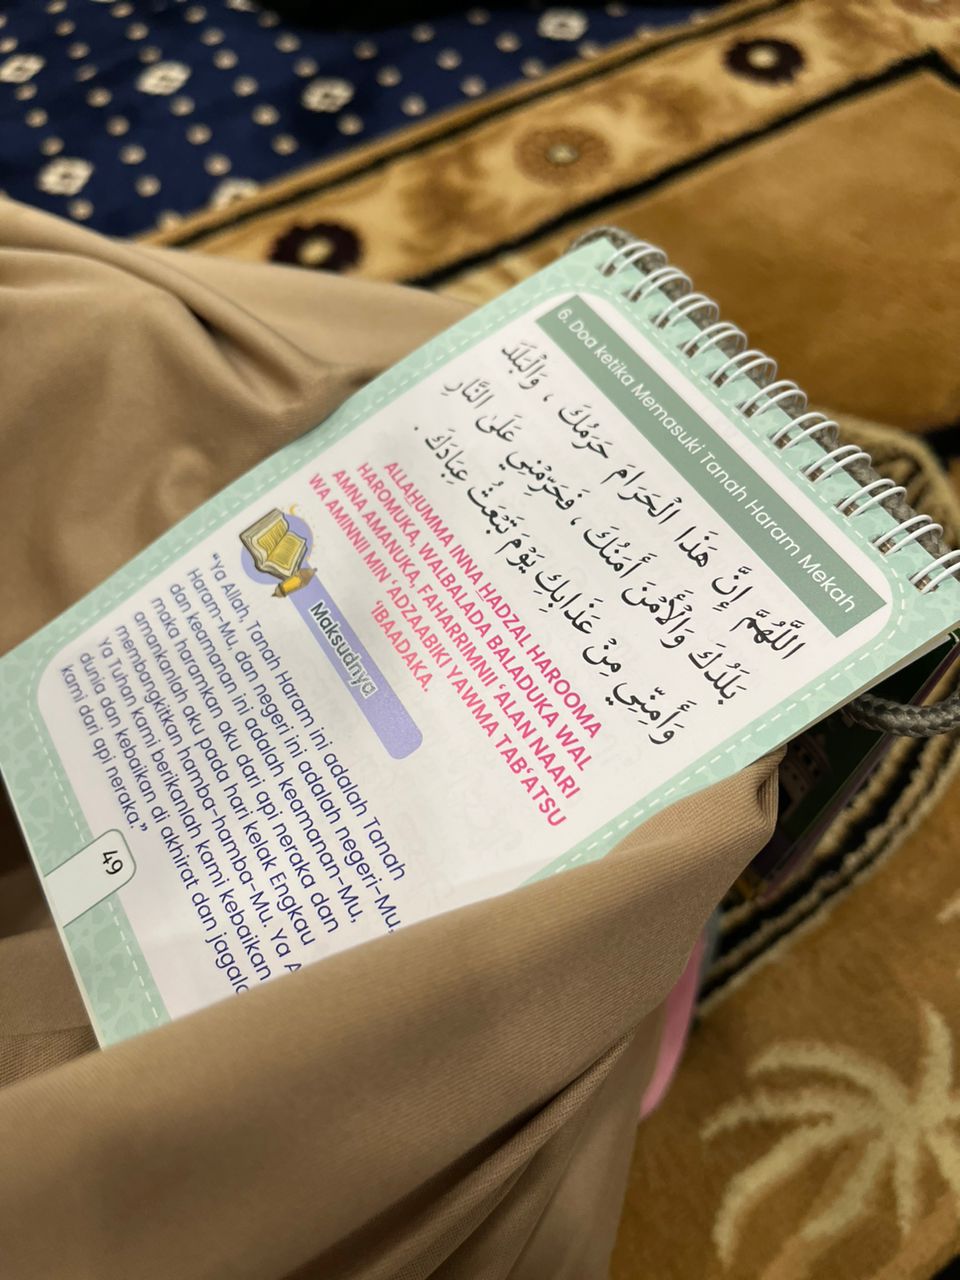 6. Doa ketika Memasuki Tanah Haram Mekah
اللَّهُمَّ إِنَّ هَذَا الْحَرَامَ حَرَمُكَ ، وَالْبَلَدَ
بَلَدُكَ وَالْأَمْنَ أَمْنُكَ ، فَحَرِّمْنِي عَلَى النَّارِ
وَأَمِنِّي مِنْ عَذَابِكِ يَوْمَ تَبْعَثُ عِبَادَكَ .
ALLAHUMMA INNA HADZAL HAROOMA
HAROMUKA, WALBALADA BALADUKA WAL
AMNA AMANUKA, FAHARRIMNII ‘ALAN NAARI
WA AMINNII MIN ‘ADZAABIKI YAWMA TAB‘ATSU
‘IBAADAKA.
Maksudnya
“Ya Allah, Tanah Haram ini adalah Tanah
Haram-Mu, dan negeri ini adalah negeri-Mu,
dan keamanan ini adalah keamanan-Mu,
maka haramkan aku dari api neraka dan
amankanlah aku pada hari kelak Engkau
membangkitkan hamba-hamba-Mu. Ya A
ya Tuhan kami berikanlah kami kebaikan
dunia dan kebaikan di akhirat dan jagala
kami dari api neraka.”
49